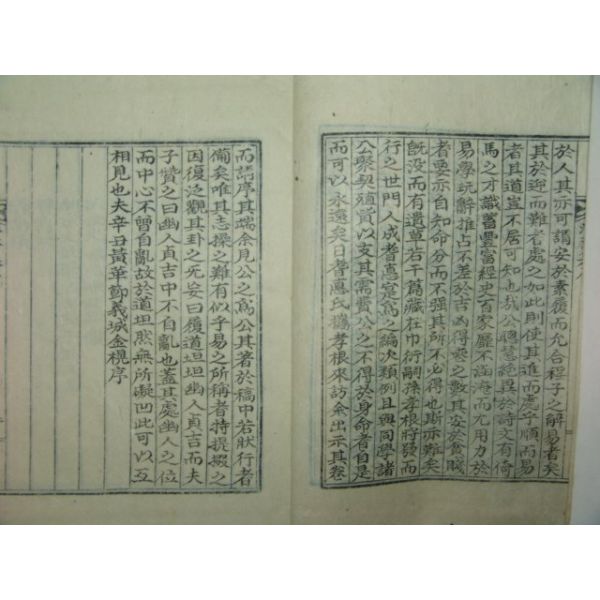 於人其亦可謂安於素履而允合程子之解易者矣
其於迎而難者處之加此則使其進而處乎順而易
者其道豈不居可知也哉公聰慧絶異於詩文有倚
馬之才識蓄豐富經史百家靡不淹而尤用力於
易學玩辭推占不差於吉凶得喪之數其安於貧賤
者要亦自知命分而不强其所不必得也斯亦難矣
旣沒而有遺草若干篇藏在巾衍嗣孫孝根將發而
行之世門人成耆悳寔爲之編次類例且與同學諸
公聚契殖貲以支其需費公之不得於身命者自是
而可以永遠矣日耆悳氏携孝根來訪余出示其卷
而請序其端余見公之爲公其著於稿中若狀行者
備矣唯其志操之難有似乎易之所稱者特提掇之
因復泛觀其卦之死安曰履道坦坦幽人貞吉而夫
子贊之曰幽人貞吉中不自亂也蓋其處幽人之位
而中心不曾自亂故於道坦然無所礙凹此可以互
相見也夫辛丑黃華節義城金榥序